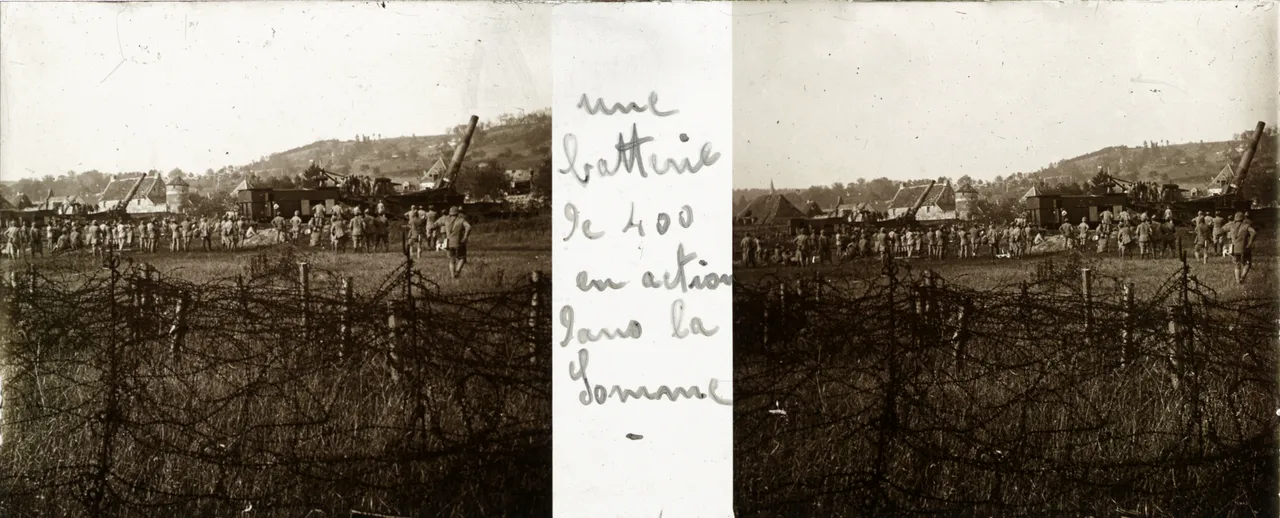 une
batterie
de 400
en action
dans la
Somme
-